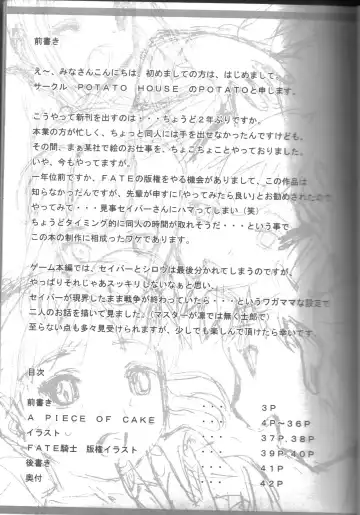 前書き
え～、みなさんこんにちは、初めましての方は、はじめまして、
サークル POTATO HOUSE のPOTATOと申します。
こうやって新刊を出すのは・・・ちょうど2年ぶりですか。
本業の方が忙しく、ちょっと同人には手を出せなかったんですけども、
その間、まぁ某社で絵のお仕事を、ちょこちょことやっておりました。
いや、今もやってますが。
一年位前ですか、FATEの版権をやる機会がありまして、この作品は
知らなかったんですが、先輩が申すに「やってみたら良い」とお勧めされたので
やってみて・・・見事セイバーさんにハマってしまい（笑）
ちょうどタイミング的に同人の時間が取れそうだ・・・という事で
この本の制作に相成ったワケであります。
ゲーム本編では、セイバーとシロウは最後分かれてしまうのですが、
やっぱりそれじゃあスッキリしないなぁと思い、
セイバーが現界したまま戦争が終わっていたら・・・というワガママな設定で
二人のお話を描いて見ました。（マスターが凛では無く士郎で）
至らない点も多々見受けられますが、少しでも楽しんで頂けたら幸いです。
目次
前書き ・・・ 3P
A PIECE OF CAKE ・・・ 4P～36P
イラスト ・・・ 37P.38P
FATE騎士 版権イラスト ・・・ 39P.40P
後書き ・・・ 41P
奥付 ・・・ 42P